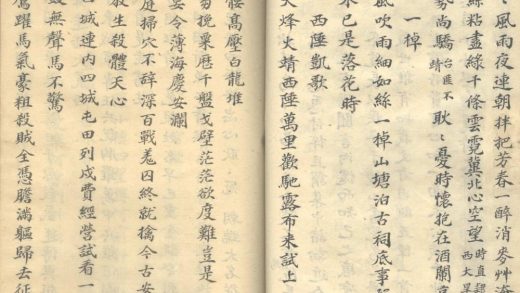 風雨夜連朝拌把芳春一醉消麥艸
絲粘盡綠千條雲霓冀北心空望 時直
西大旱
勢尚驕 台匪不
靖 耿〻憂時懷抱在酒闌
一棹
風吹雨細如絲一棹山塘泊古祠底事
木已是落花時
西陲凱歌
大烽火靖西陲萬里歡馳露布來試上
腰高壓白龍堆
芻挽粟歷千盤戈壁茫茫欲度難豈是
安令薄海慶安瀾
庭掃穴不辭深百戰羌囚終就擒今古安
放生殺體天心
城連內四城屯田列戍費經營試看一
鼓無聲馬不驚
躍馬氣豪粗殺賊全憑膽滿軀歸去征